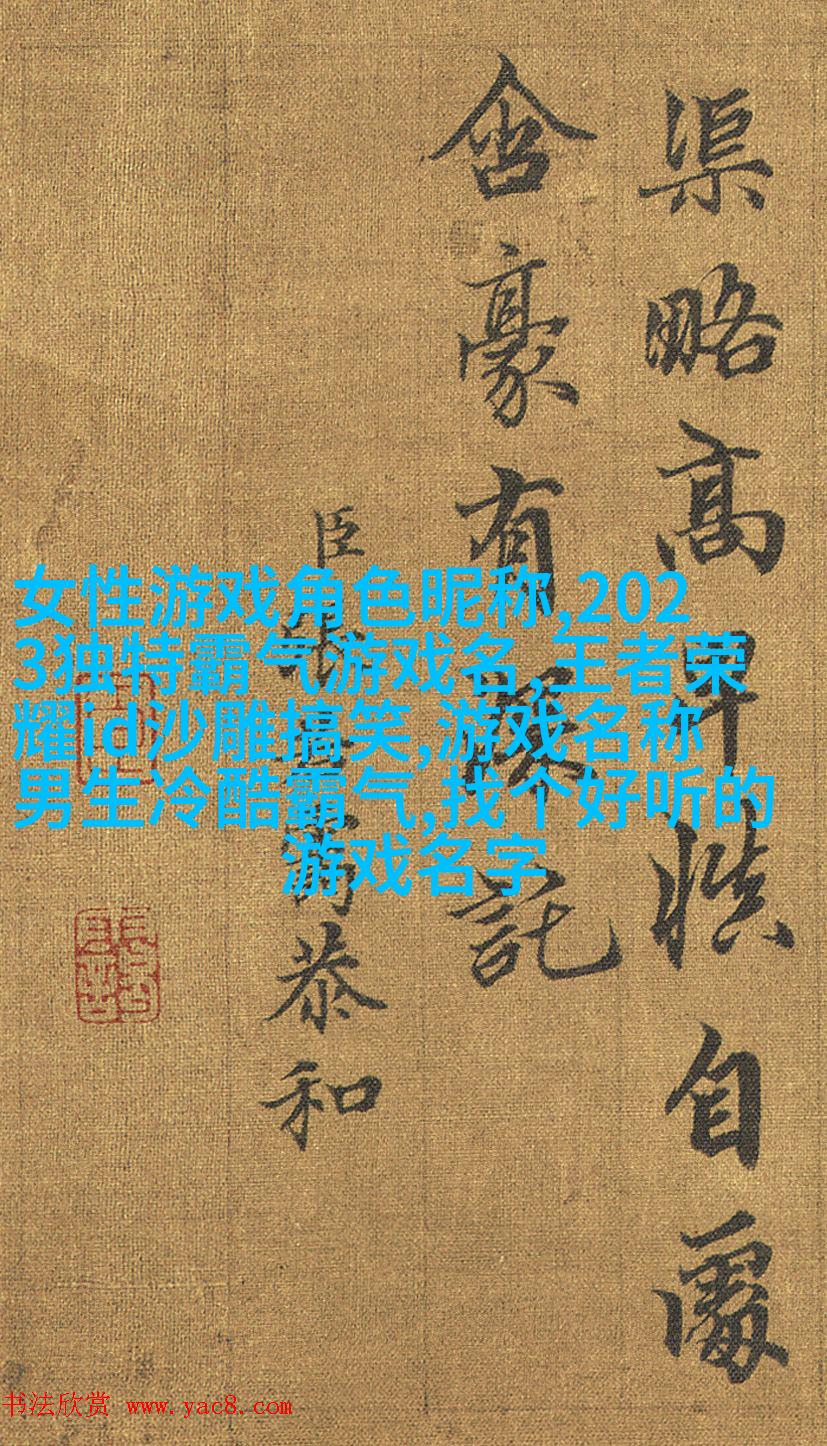 渠略高卑慎自處
含豪有深託
臣恭和
女性游戏角色昵称,202
3独特霸气游戏名,王者荣
耀id沙雕搞笑,游戏名称
男生冷酷霸气,找个好听的
游戏名字
书法欣赏 www.yac8.com